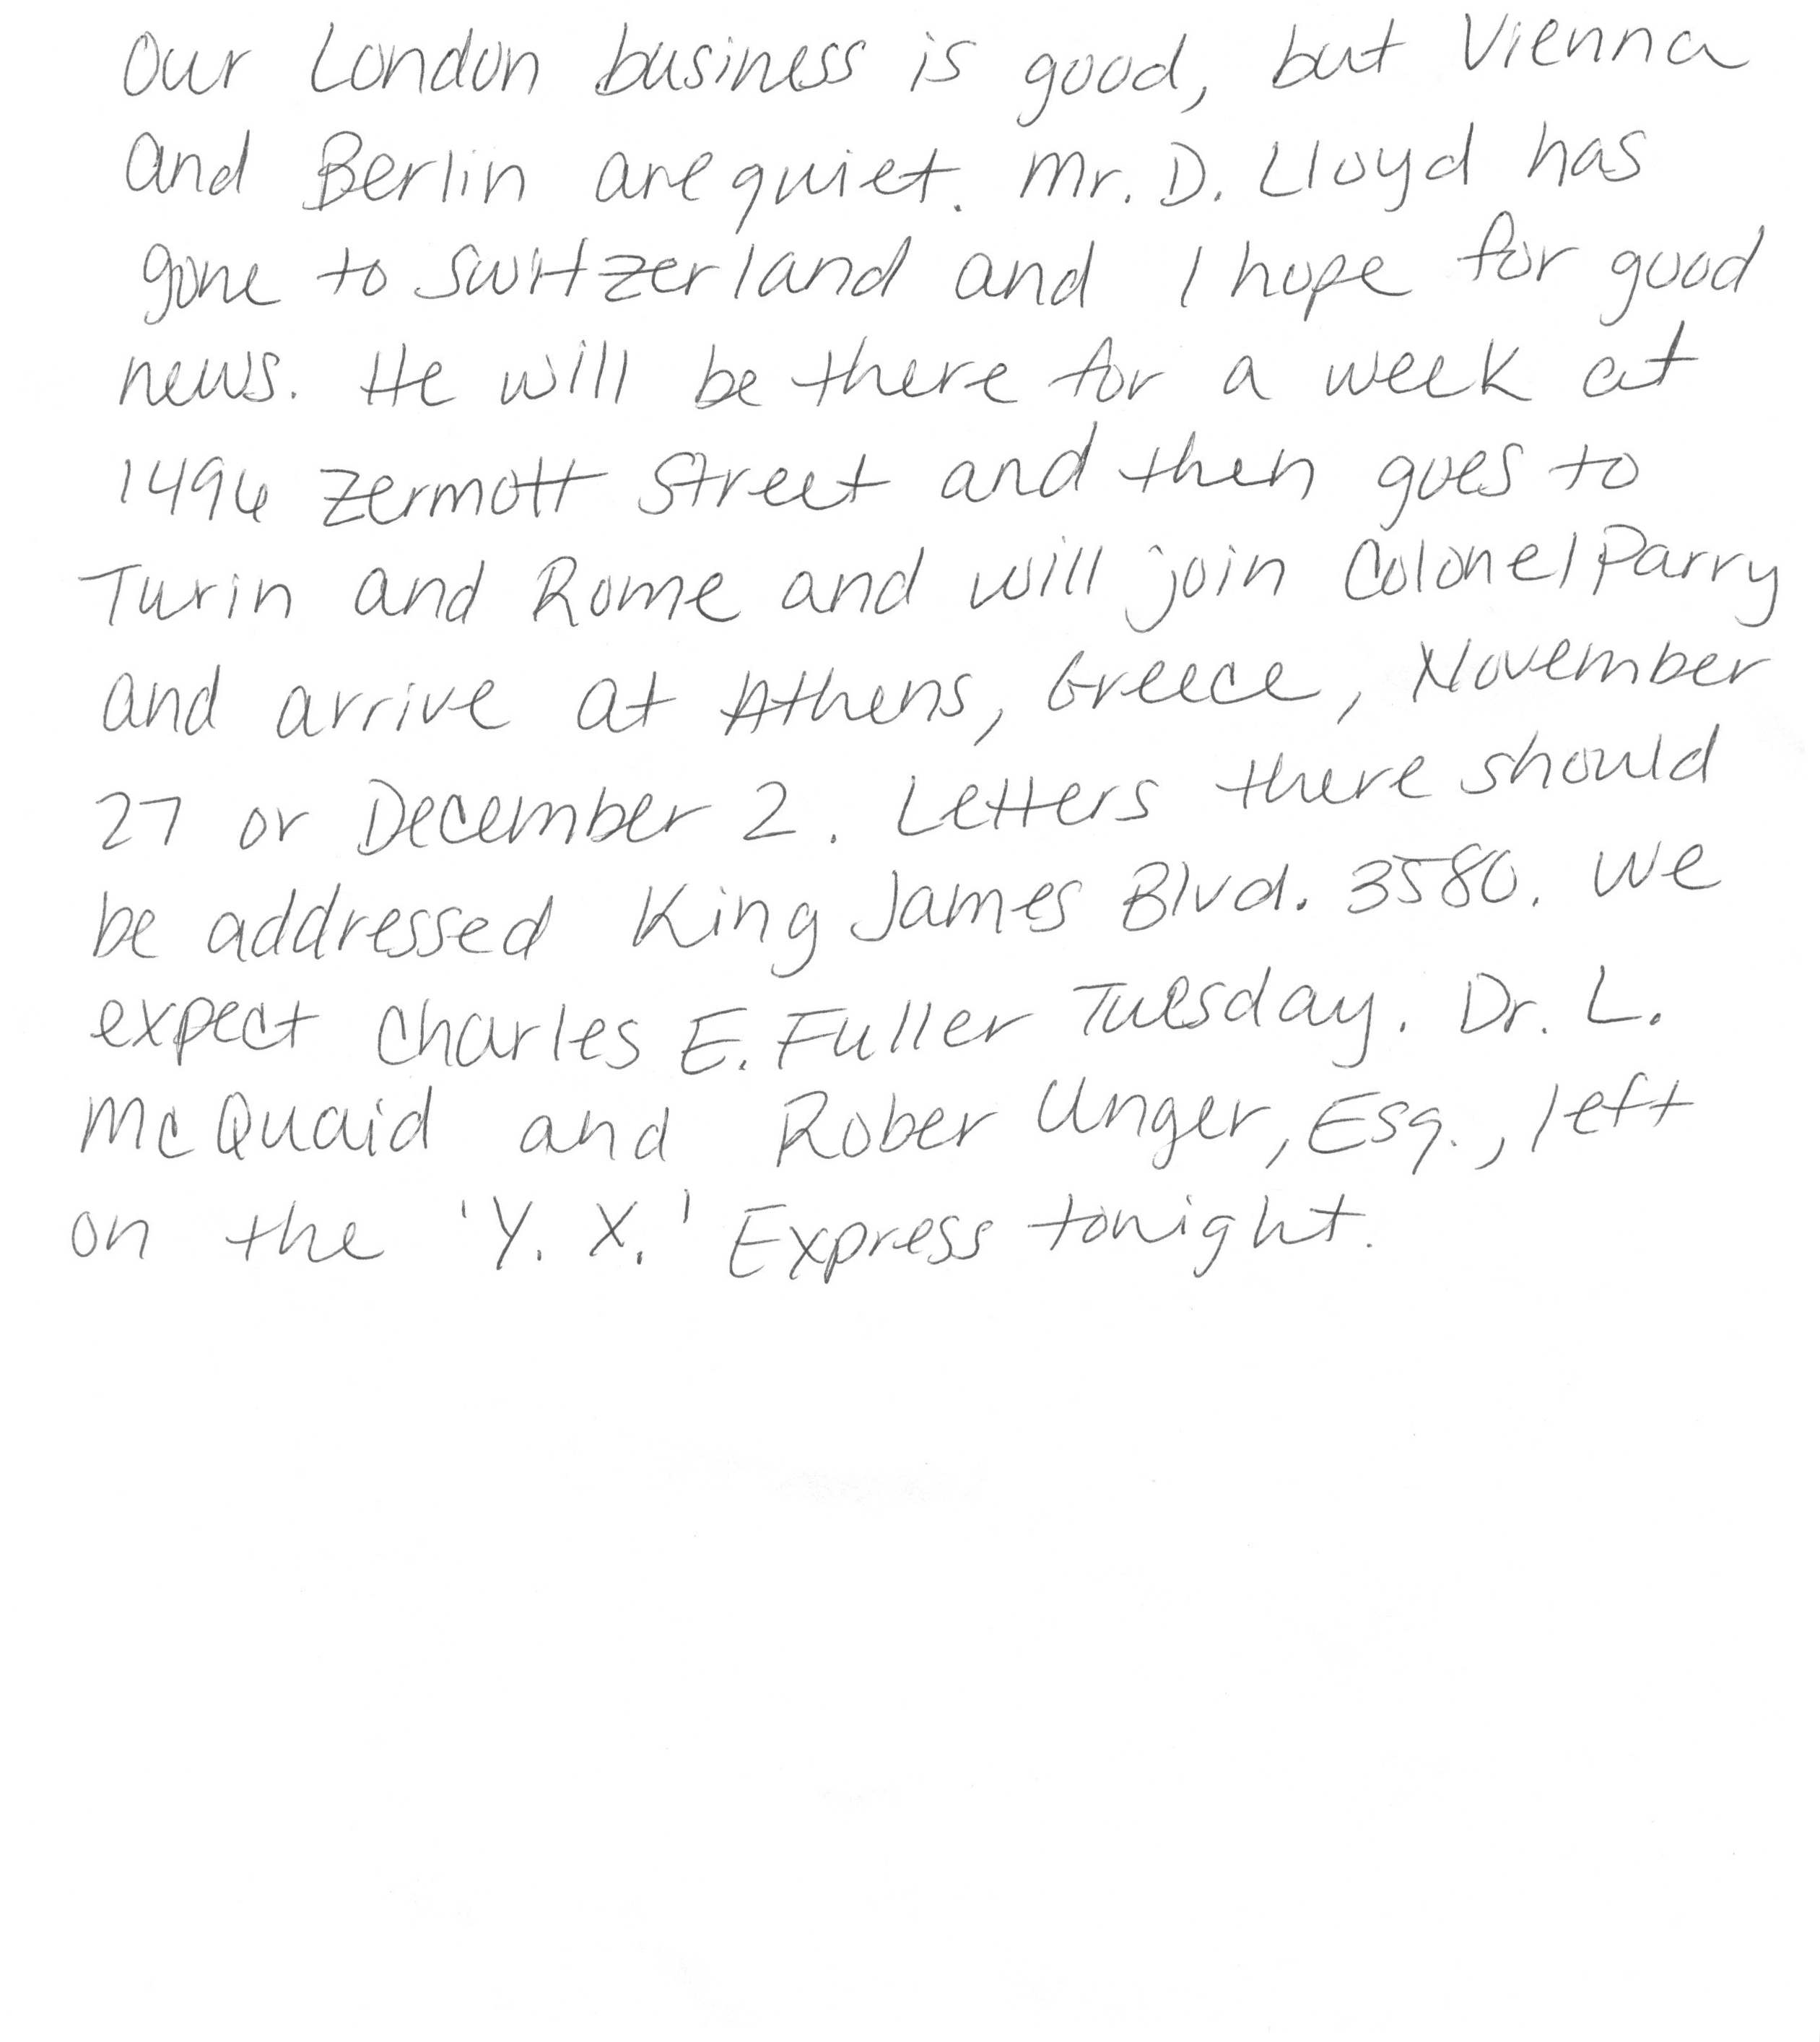 Our London business is good, but Vienna
and Berlin are quiet. Mr. D. Lloyd has
gone to Switzerland and I hope for good
news. He will be there for a week at
1496 Zermott Street and then goes to
Turin and Rome and will join Colonel Parry
and arrive at Athens, Greece, November
27 or December 2. Letters there should
be addressed King James Blvd. 3580. We
expect Charles E. Fuller Tuesday. Dr. L.
McQuaid and Rober Unger, Esq., left
on the 'Y. X.' Express tonight.